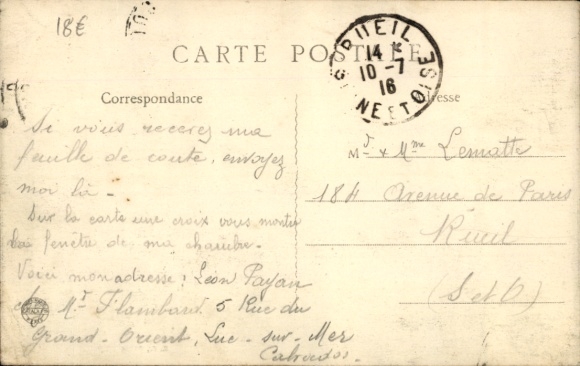 18€
CARTE POSTALE
RUEIL
14 *
10-7
16
SEINE ET OISE
Correspondance
Adresse
Si vous recevez ma
feuille de coute, envoyez
moi là -
Sur la carte une croix vous montre
la fenêtre de ma chambre -
Voici mon adresse : Léon Payan
chez Mr Flambard. 5 Rue du
Grand-Orient, Luc-sur-Mer
Calvados.
Mr & Mme Lematte
184 Avenue de Paris
Rueil
(S et O)